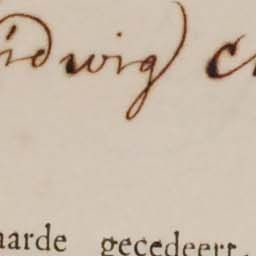 udwig C
aarde gecedeert,